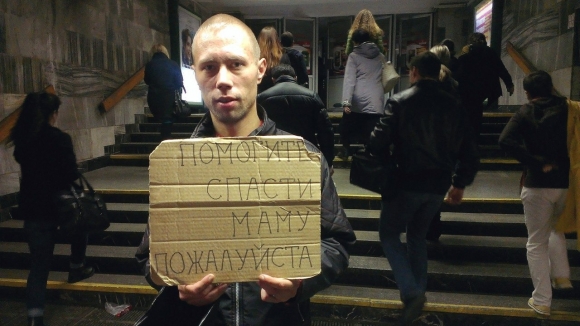 ПОМОГИТЕ
СПАСТИ
МАМУ
ПОЖАЛУЙСТА